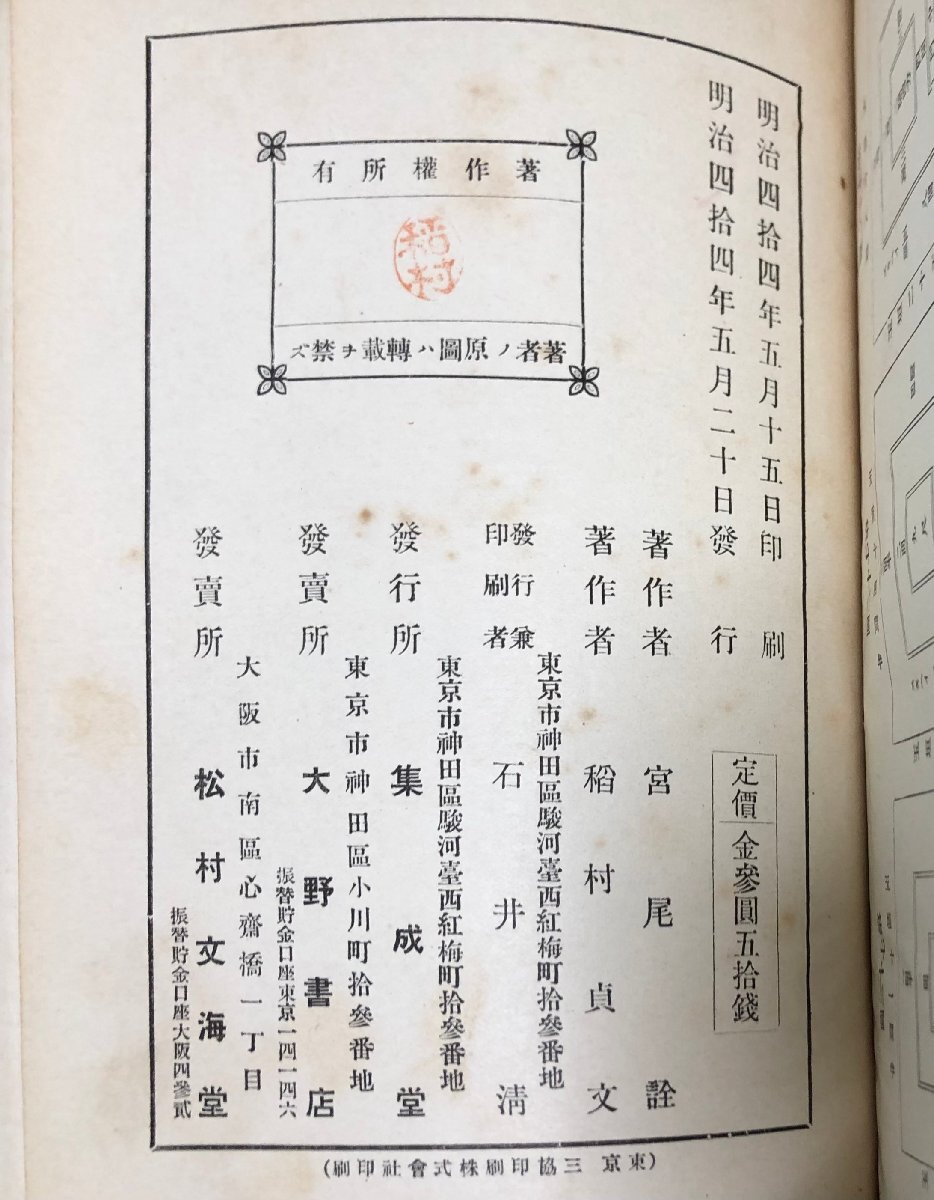 明治四拾四年五月十五日印刷
明治四拾四年五月二十日發行
定價 金參圓五拾錢
著作權所有
稻村
著者ノ原圖ハ轉載ヲ禁ズ
著作者 宮尾詮
著作者 稻村貞文
東京市神田區駿河臺西紅梅町拾參番地
發行兼
印刷者 石井淸
東京市神田區駿河臺西紅梅町拾參番地
發行所 集成堂
東京市神田區小川町拾參番地
發賣所 大野書店
振替貯金口座東京一四一四六
大阪市南區心齋橋一丁目
發賣所 松村文海堂
振替貯金口座大阪四參貳
(東京 三協印刷株式會社印刷)